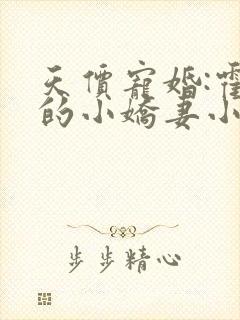 天價寵婚:霍
的小嬌妻小
步步精心